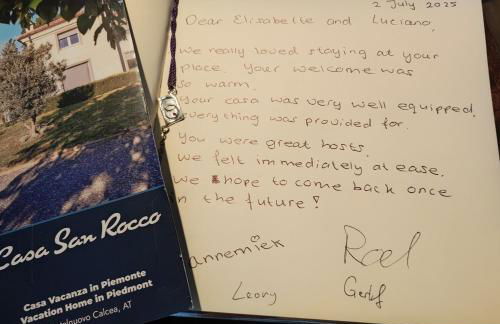 2 July 2025
Dear Elisabette and Luciano,
We really loved staying at your
place. Your welcome was
so warm.
Your casa was very well equipped.
Everything was provided for.
You were great hosts.
We felt immediately at ease.
We hope to come back once
in the future!
annemiek
Roel
Leony
Casa San Rocco
Casa Vacanza in Piemonte
Vacation Home in Piedmont
Calcea, AT